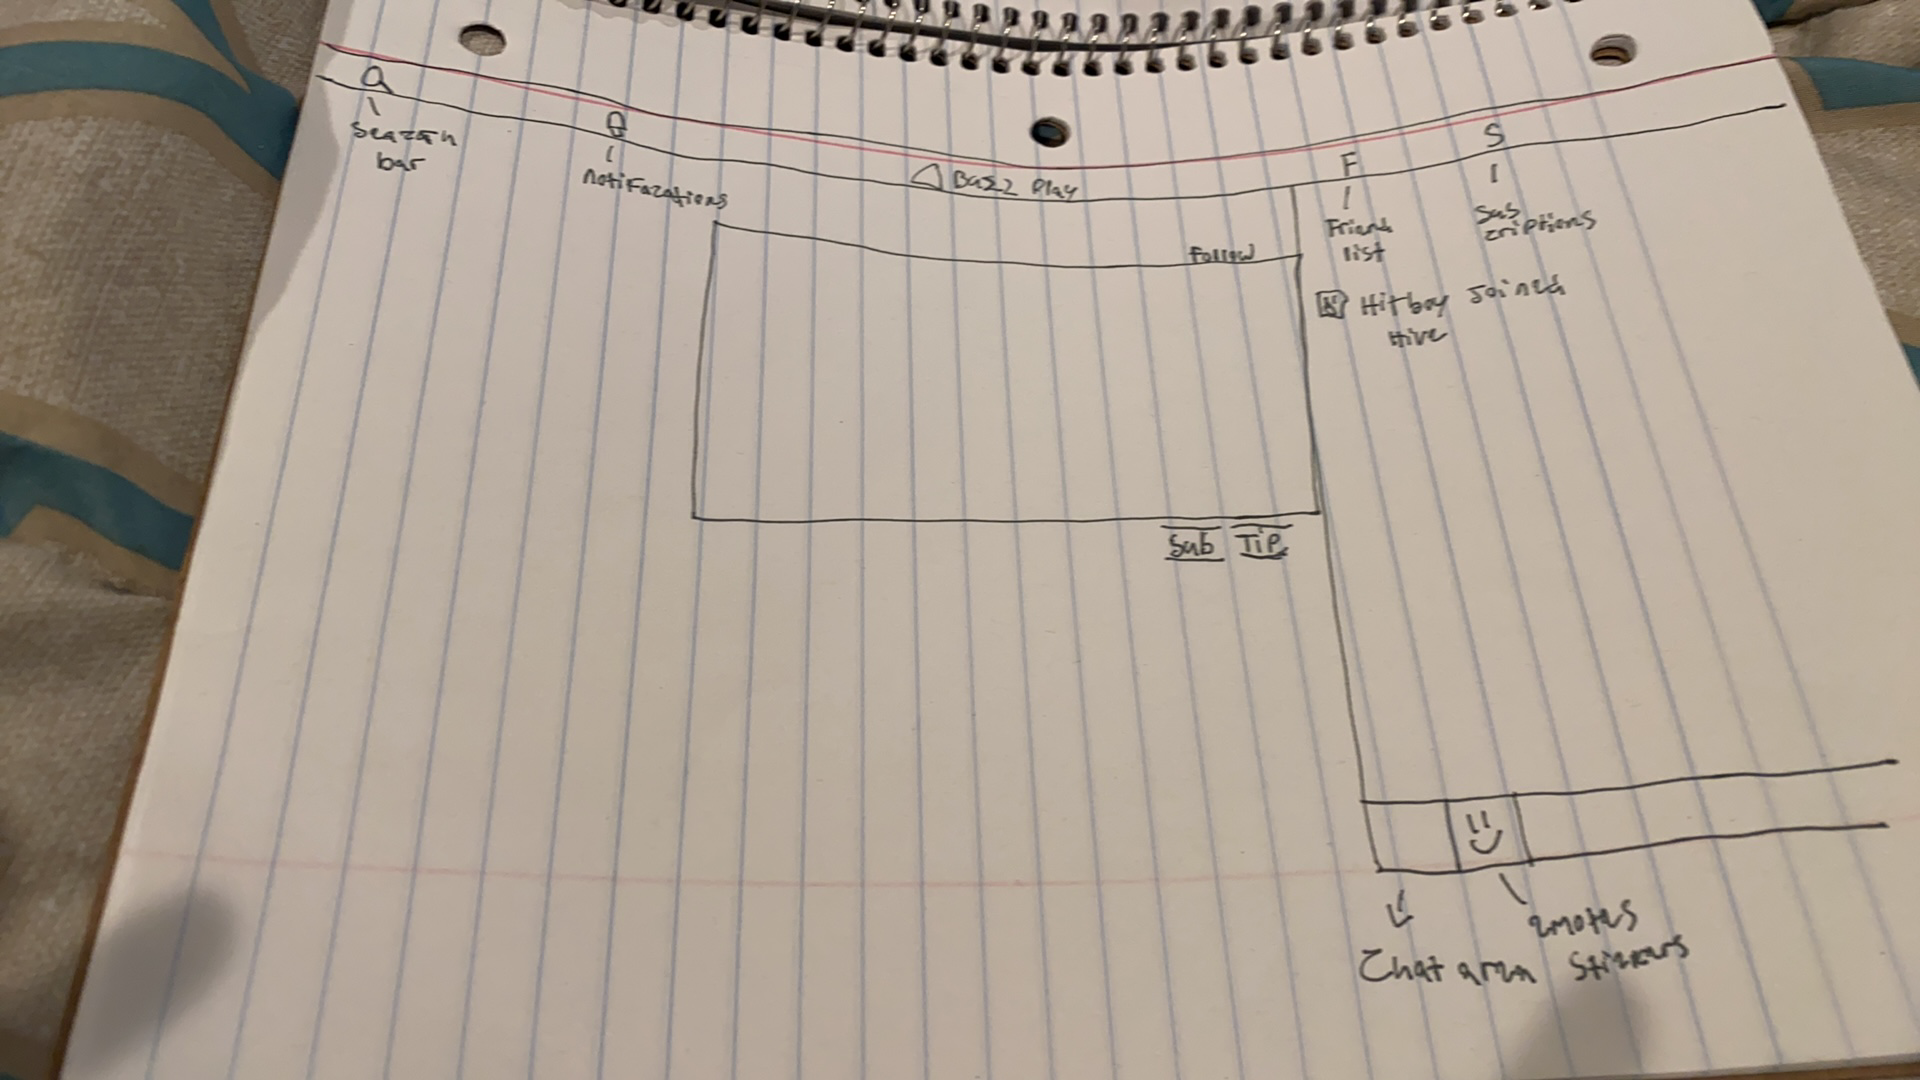 Search
bar
notifazations
Base Play
F
S
Friend
list
Sub
criptions
Follow
Hitboy Joined
Hive
Sub
Tip
emotes
Chat area
Stickers